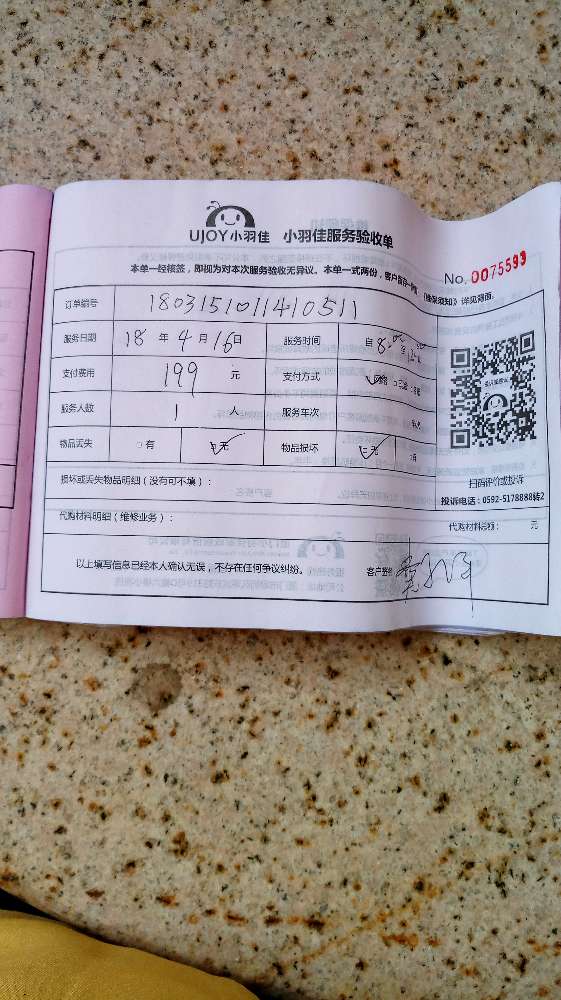 UJOY小羽佳 小羽佳服务验收单
No. 0075593
本单一经核签，即视为对本次服务验收无异议。本单一式两份，客户《维保须知》详见背面。
订单编号 1803151011410511
服务日期 18 年 4 月 16 日 服务时间 自 8:00 至
支付费用 199 元 支付方式
服务人数 1 人 服务车次
物品丢失 □有 □无 物品损坏 □无
扫码评价或投诉
投诉电话：0592-5178888转2
损坏或丢失物品明细（没有可不填）：
代购材料明细（维修业务）： 代购材料总额： 元
以上填写信息已经本人确认无误，不存在任何争议纠纷。 客户签